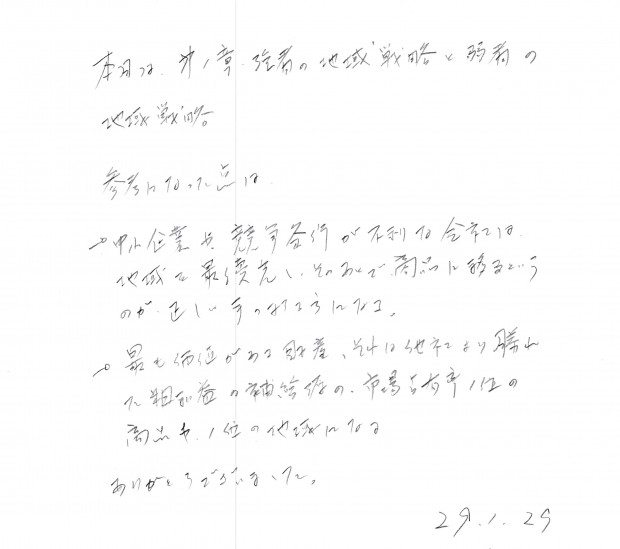 本日は、第1章、強者の地域戦略と弱者の
地域戦略。
参考になった点は
中小企業や競争条件が不利な会社では、
地域を最優先し、そのあとで商品に移るという
のが正しい手の打ち方になる。
最も価値がある財産、それは他社より勝れ
た粗利益の補給源の、市場占有率1位の
商品や、1位の地域になる
ありがとうございました。
29.1.29